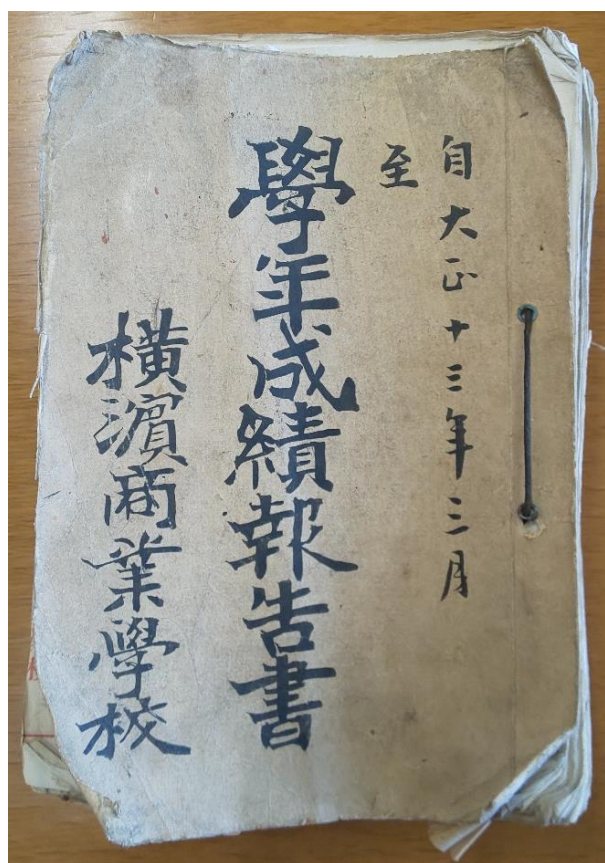 自大正十三年三月
至
學年成績報告書
橫濱商業學校